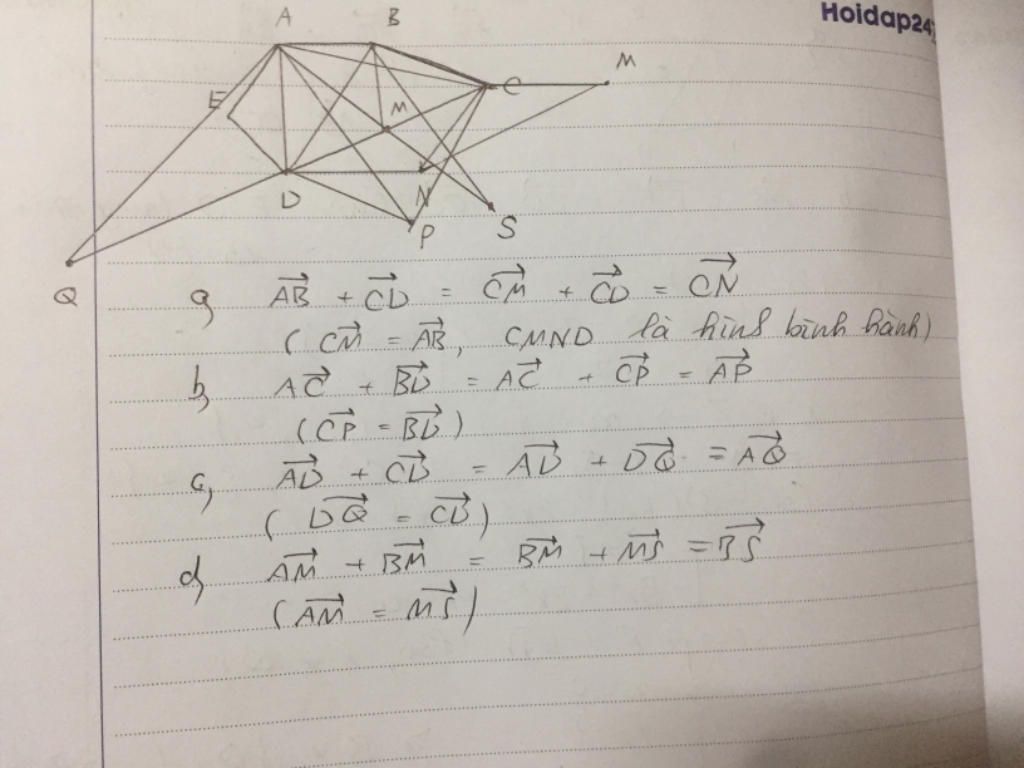 Hoidap247
A B
M
E M C
D N
P S
Q
a, $\overrightarrow{AB} + \overrightarrow{CD} = \overrightarrow{CM} + \overrightarrow{CD} = \overrightarrow{CN}$
($\overrightarrow{CM} = \overrightarrow{AB}$, CMND là hình bình hành)
b, $\overrightarrow{AC} + \overrightarrow{BD} = \overrightarrow{AC} + \overrightarrow{CP} = \overrightarrow{AP}$
($\overrightarrow{CP} = \overrightarrow{BD}$)
c, $\overrightarrow{AD} + \overrightarrow{CD} = \overrightarrow{AD} + \overrightarrow{DQ} = \overrightarrow{AQ}$
($\overrightarrow{DQ} = \overrightarrow{CD}$)
d, $\overrightarrow{AM} + \overrightarrow{BM} = \overrightarrow{BM} + \overrightarrow{MS} = \overrightarrow{BS}$
($\overrightarrow{AM} = \overrightarrow{MS}$)